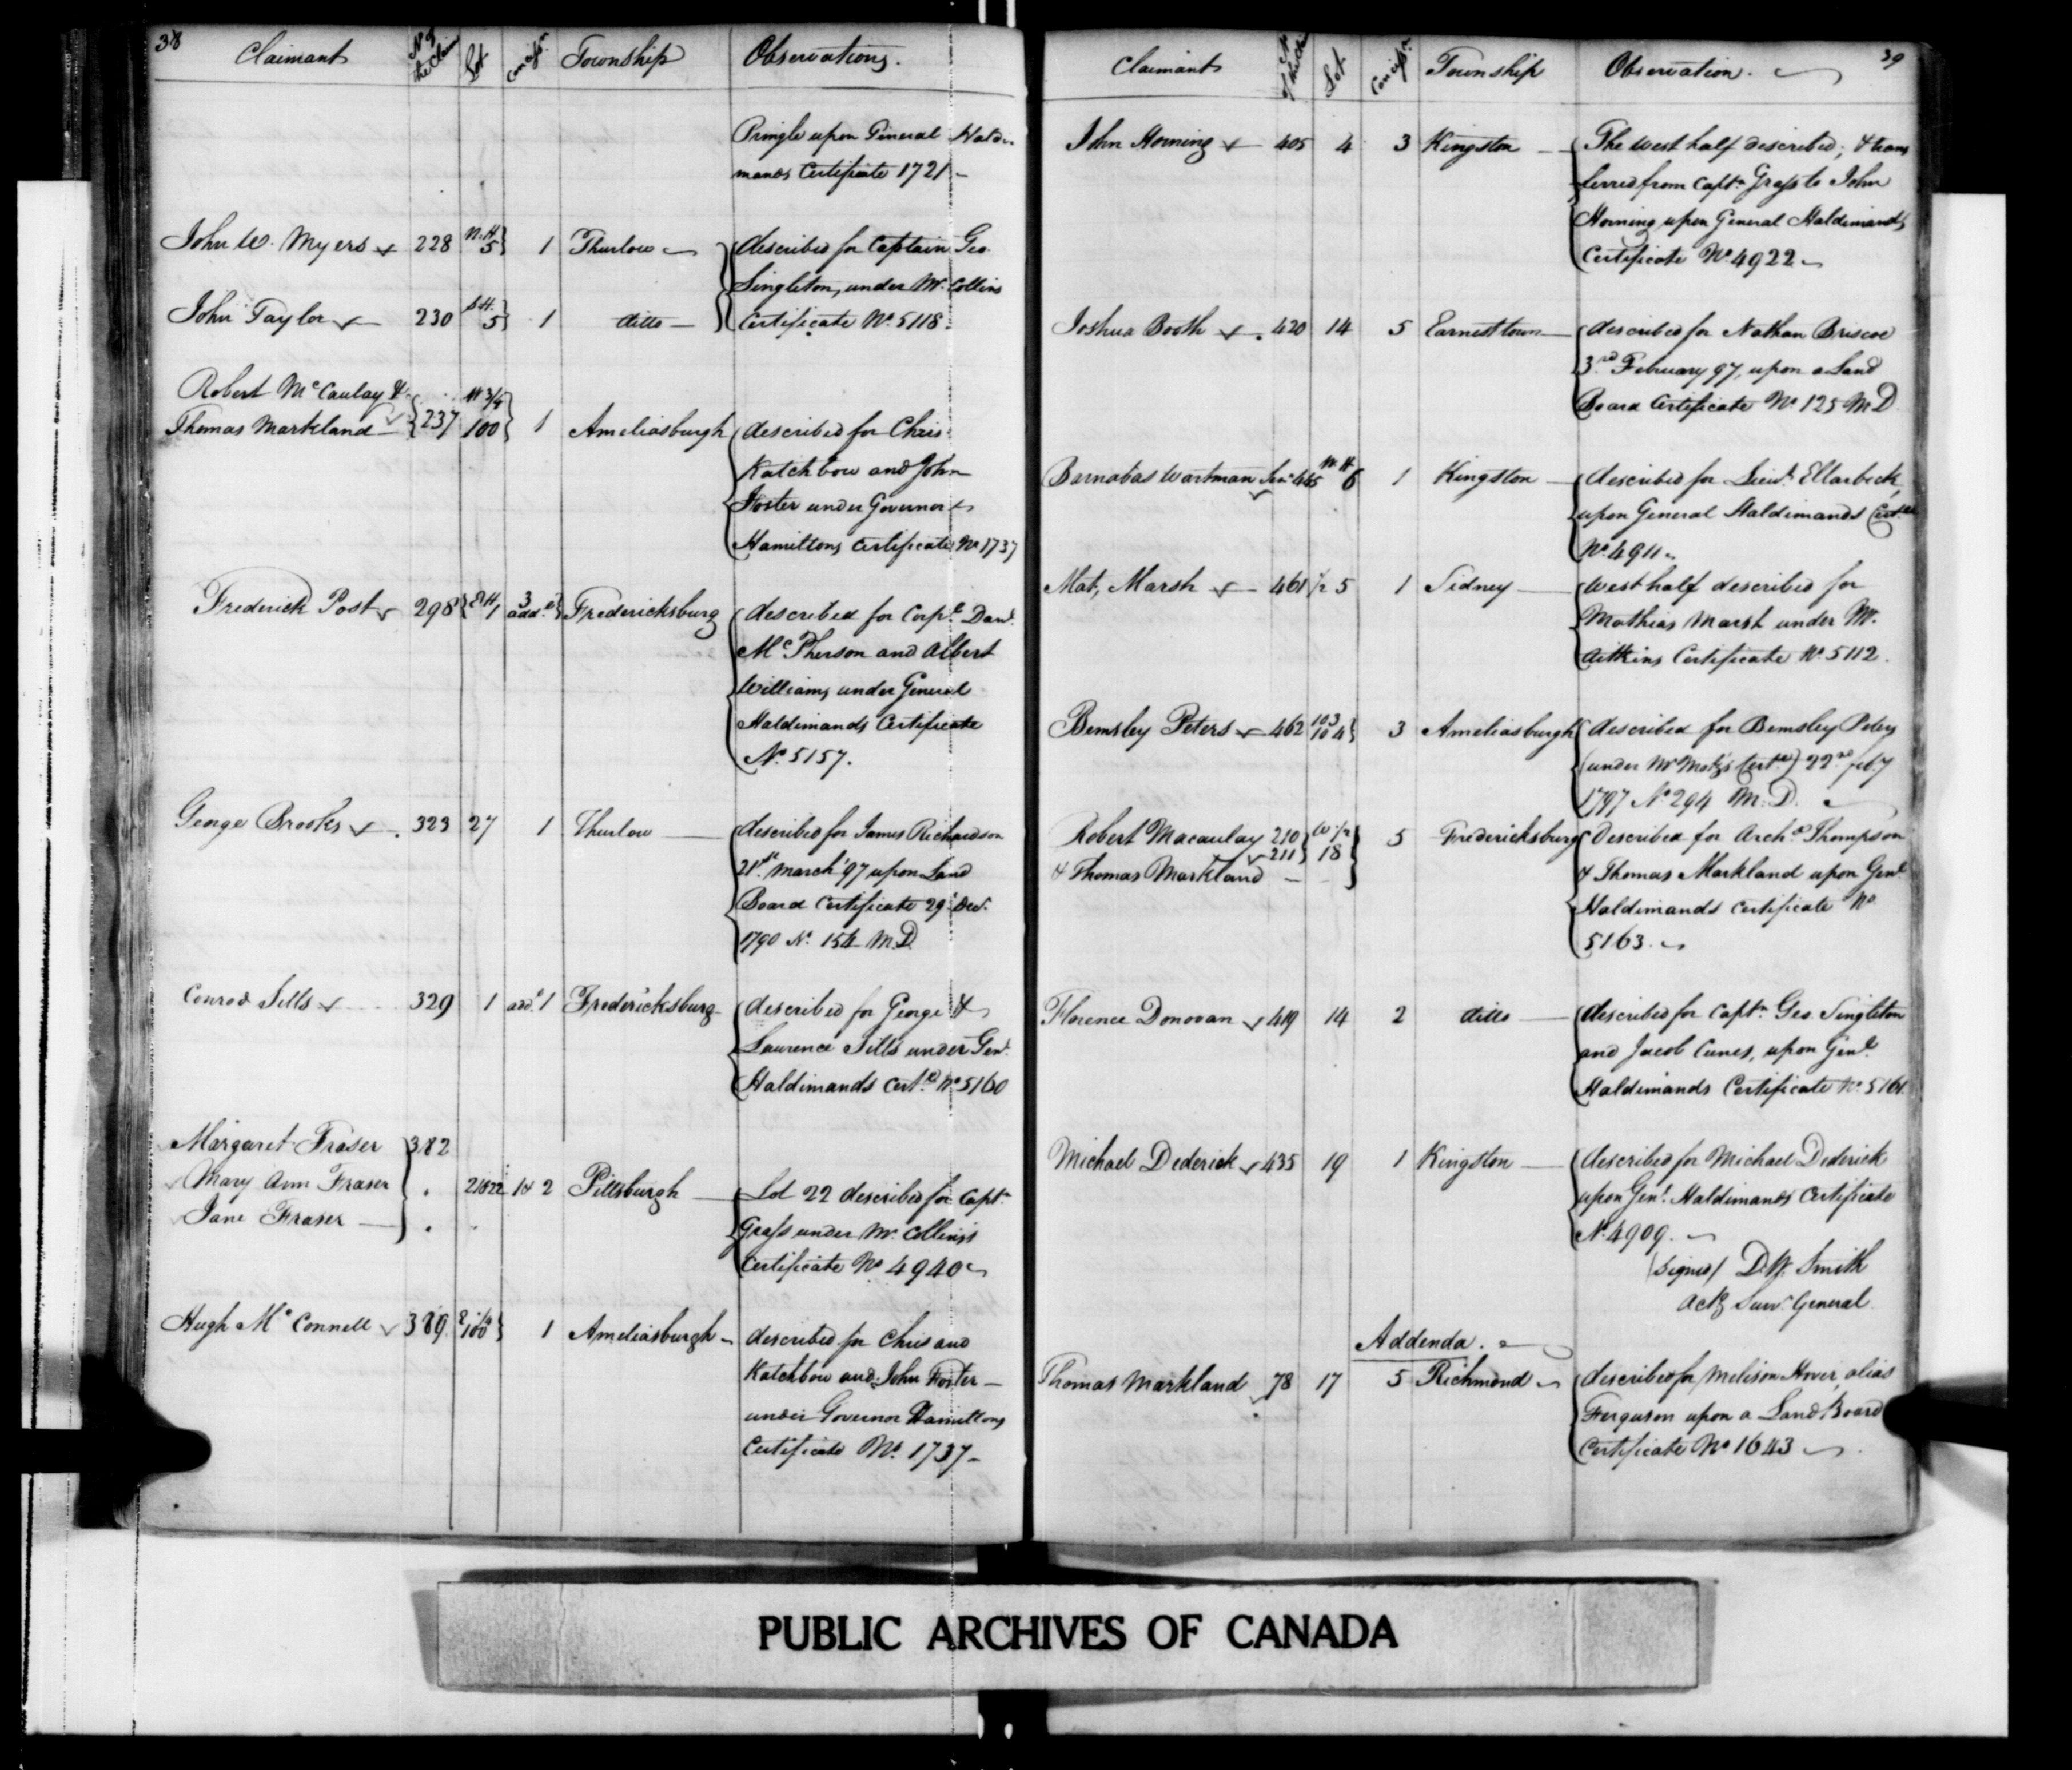 38
Claimant No of the Claim Lot Concessn Township Observations.
Pringle upon General Haldi-
mands Certificate 1721 -
John W. Myers 228 N.H. 5 } 1 Thurlow described for Captain Geo.
Singleton, under Mr. Collins
John Taylor 230 S.H. 5 } 1 ditto - Certificate No. 5118.
Robert McCaulay & W 3/4
Thomas Markland 237 100 1 Ameliasburgh described for Chris
Katchbow and John
Foster under Governor
Hamiltons Certificate No 1737
Frederick Post 298 1 3 add. Fredericksburg described for Corpl. Danl.
McPherson and Albert
Williams, under General
Haldimands Certificate
No. 5157.
George Brooks 323 27 1 Thurlow described for James Richardson
21st. March 97 upon Land
Board Certificate 29 Dec.
1790 No. 154 M.D.
Conrod Sills 329 1 add. 1 Fredericksburg described for George &
Laurence Sills under Genl.
Haldimands Certe. No. 5160
Margaret Fraser 382
Mary Ann Fraser 21&22 1& 2 Pittsburgh Lot 22 described for Captn.
Jane Fraser Grass under Mr. Collins's
Certificate No 4940
Hugh McConnell 389 E 1/4 100 } 1 Ameliasburgh described for Chris and
Katchbow and John Foster -
under Governor Hamiltons
Certificate No. 1737 -
39
Claimant No of the Claim Lot Concessn Township Observation.
John Horning 405 4 3 Kingston The West half described; & trans
ferred from Captn. Grass to John
Horning upon General Haldimands
Certificate No. 4922
Joshua Booth 420 14 5 Earnesttown described for Nathan Briscoe
3rd February 97, upon a Land
Board Certificate No 125 M.D
Barnabas Wartman Senr 445 W H 6 1 Kingston described for Lieut. Ellarbeck,
upon General Haldimands Certe
No. 4911
Mat, Marsh 461 1/2 5 1 Sidney West half described for
Mathias Marsh under Mr.
Aitkins Certificate No. 5112.
Bemsley Peters 462 103 104 } 3 Ameliasburgh described for Bemsley Peters
(under Mr Motz's Certe) 22nd feby
1797 No 294 M.D.
Robert Macaulay 210 W 1/2 5 Fredericksburg Described for Archd Thompson
211 18
& Thomas Markland - & Thomas Markland upon Genl
Haldimands Certificate No
5163.
Florence Donovan 419 14 2 ditto described for Captn. Geo. Singleton
and Jacob Cunes, upon Genl.
Haldimands Certificate No. 5161.
Michael Dederick 435 19 1 Kingston described for Michael Dederick
upon Genl. Haldimands Certificate
No. 4909.
(Signed) D.W. Smith
Actg Survr. General
Addenda.
Thomas Markland 78 17 5 Richmond described for Melison Hover, alias
Ferguson upon a Land Board
Certificate No 1643
PUBLIC ARCHIVES OF CANADA